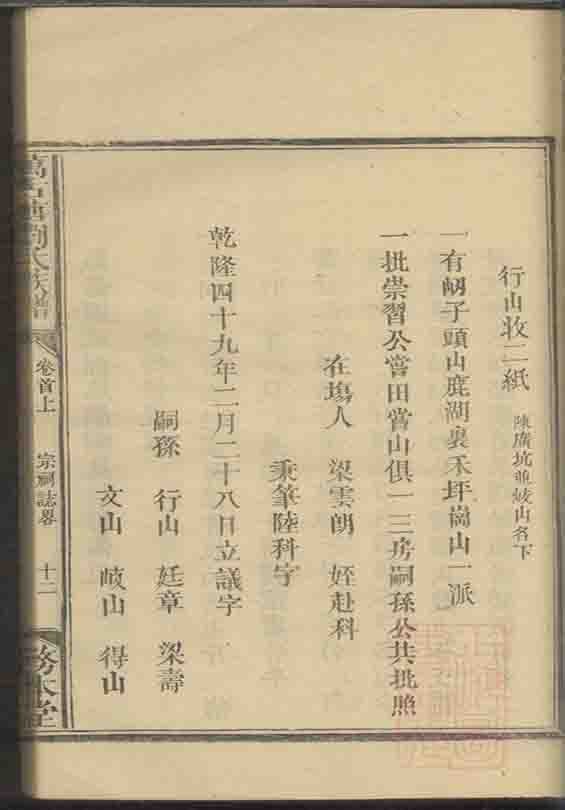 行山收二紙 陳廣坑並岐山名下
一有㘭子頭山鹿湖裏禾坪崗山一派
一批崇習公嘗田嘗山俱一二房嗣孫公共批照
在塲人 梁雲朗 姪赴科
秉筆陸科字
乾隆四十九年二月二十八日立議字
嗣孫 行山 廷章 梁壽
文山 岐山 得山
劉氏族譜 卷首上 宗祠誌畧 十二 務本堂